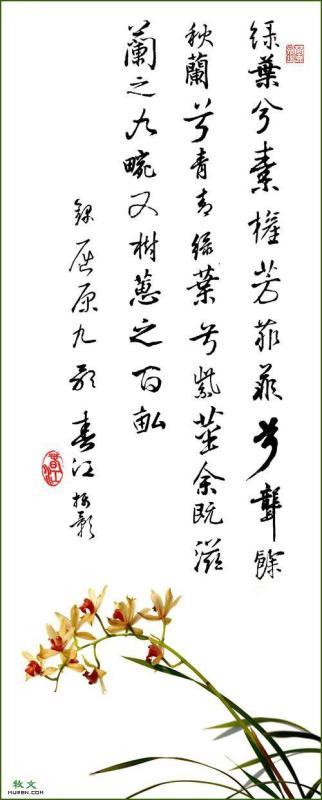 绿葉兮素芳菲菲兮餘
秋蘭兮青青绿葉兮紫莖余既滋
蘭之九畹又樹蕙之百畝
錄屈原九歌 春江 影
春江
牧文